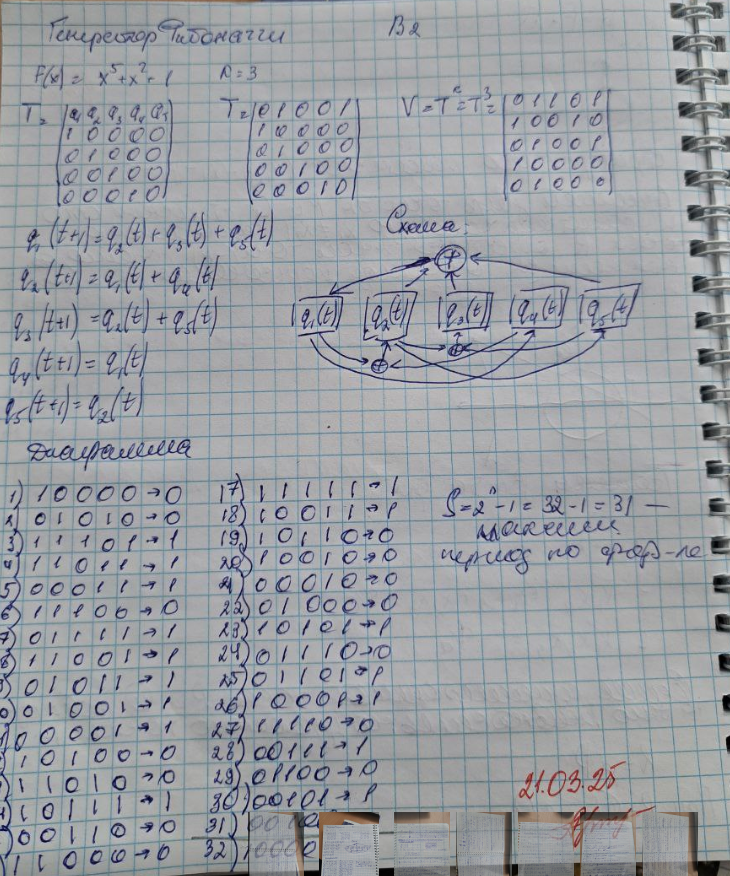 Генератор Фибоначчи В2
F(x) = x⁵+x²+1 n=3
T= |a₁ a₂ a₃ a₄ a₅| T= |0 1 0 0 1| V=Tⁿ=T³= |0 1 1 0 1|
1 0 0 0 0 1 0 0 0 0 1 0 0 1 0
0 1 0 0 0 0 1 0 0 0 0 1 0 0 1
0 0 1 0 0 0 0 1 0 0 1 0 0 0 0
0 0 0 1 0 0 0 0 1 0 0 1 0 0 0
q₁(t+1)=q₂(t)+q₃(t)+q₅(t)
Схема:
q₂(t+1)=q₁(t)+q₄(t)
q₃(t+1)=q₂(t)+q₅(t)
q₄(t+1)=q₁(t)
q₅(t+1)=q₂(t)
+
q₁(t) q₂(t) q₃(t) q₄(t) q₅(t)
+ +
Диаграмма
1) 1 0 0 0 0 → 0
2) 0 1 0 1 0 → 0
3) 1 1 1 0 1 → 1
4) 1 1 0 1 1 → 1
5) 0 0 0 1 1 → 1
6) 1 1 1 0 0 → 0
7) 0 1 1 1 1 → 1
8) 1 1 0 0 1 → 1
) 0 1 0 1 1 → 1
0) 0 1 0 0 1 → 1
) 0 0 0 0 1 → 1
) 1 0 1 0 0 → 0
) 1 1 0 1 0 → 0
) 1 0 1 1 1 → 1
) 0 0 1 1 0 → 0
) 1 1 0 0 0 → 0
17) 1 1 1 1 1 → 1
18) 1 0 0 1 1 → 1
19) 1 0 1 1 0 → 0
20) 1 0 0 1 0 → 0
21) 0 0 0 1 0 → 0
22) 0 1 0 0 0 → 0
23) 1 0 1 0 1 → 1
24) 0 1 1 1 0 → 0
25) 0 1 1 0 1 → 1
26) 1 0 0 0 1 → 1
27) 1 1 1 1 0 → 0
28) 0 0 1 1 1 → 1
29) 0 1 1 0 0 → 0
30) 0 0 1 0 1 → 1
31) 0 0 1 0
32) 1 0 0 0 0
S=2ⁿ-1=32-1=31 —
период по
21.03.25